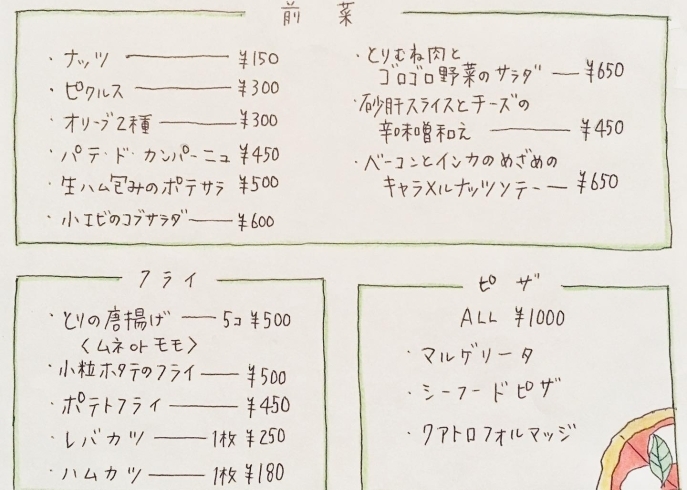 前菜
・ナッツ ¥150
・ピクルス ¥300
・オリーブ2種 ¥300
・パテ・ド・カンパーニュ ¥450
・生ハム包みのポテサラ ¥500
・小エビのコブサラダ ¥600
・とりむね肉と
ゴロゴロ野菜のサラダ ¥650
・砂肝スライスとチーズの
辛味噌和え ¥450
・ベーコンとインカのめざめの
キャラメルナッツソテー ¥650
フライ
・とりの唐揚げ 5コ ¥500
〈ムネ or モモ〉
・小粒ホタテのフライ ¥500
・ポテトフライ ¥450
・レバカツ 1枚 ¥250
・ハムカツ 1枚 ¥180
ピザ
ALL ¥1000
・マルゲリータ
・シーフードピザ
・クアトロフォルマッジ